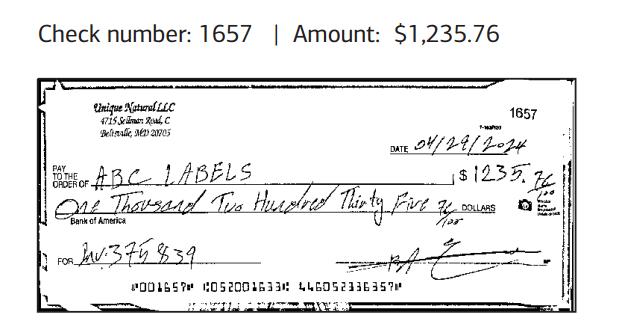 Check number: 1657 | Amount: $1,235.76
Unique Natural LLC
4715 Sellman Road, C
Beltsville, MD 20705
1657
DATE 04/29/2024
PAY TO THE ORDER OF ABC LABELS $ 1235. 76/100
One Thousand Two Hundred Thirty Five 76/100 DOLLARS
Bank of America
FOR Inv: 375839
⑈001657⑈ ⑆052001633⑆ 446052336357⑈